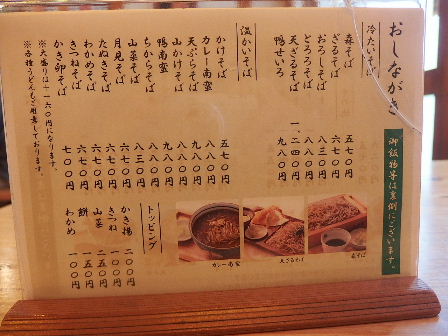 おしながき
御飯物等は裏側にございます。
冷たいそば
森そば 五七〇円
ざるそば 六七〇円
おろしそば 八三〇円
とろろそば 八八〇円
天ざるそば 一、二四〇円
鴨せいろ 九八〇円
温かいそば
かけそば 五七〇円
カレー南蛮 八八〇円
天ぷらそば 九八〇円
山かけそば 八八〇円
鴨南蛮 九八〇円
ちからそば 八八〇円
山菜そば 八三〇円
月見そば 六七〇円
たぬきそば 六七〇円
わかめそば 六七〇円
きつねそば 七〇〇円
かき卵そば 七〇〇円
※大盛りは＋一六〇円になります。
※各種うどんもご用意しております。
トッピング
かき揚 二〇〇円
きつね 一〇〇円
山菜 二五〇円
餅 一五〇円
わかめ 一〇〇円
森そば
天ざるそば
カレー南蛮